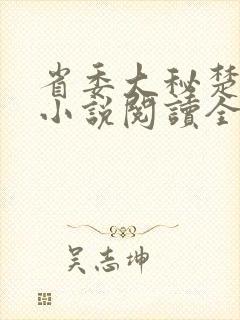 省委大秘楚
小說閱讀全
吴志坤